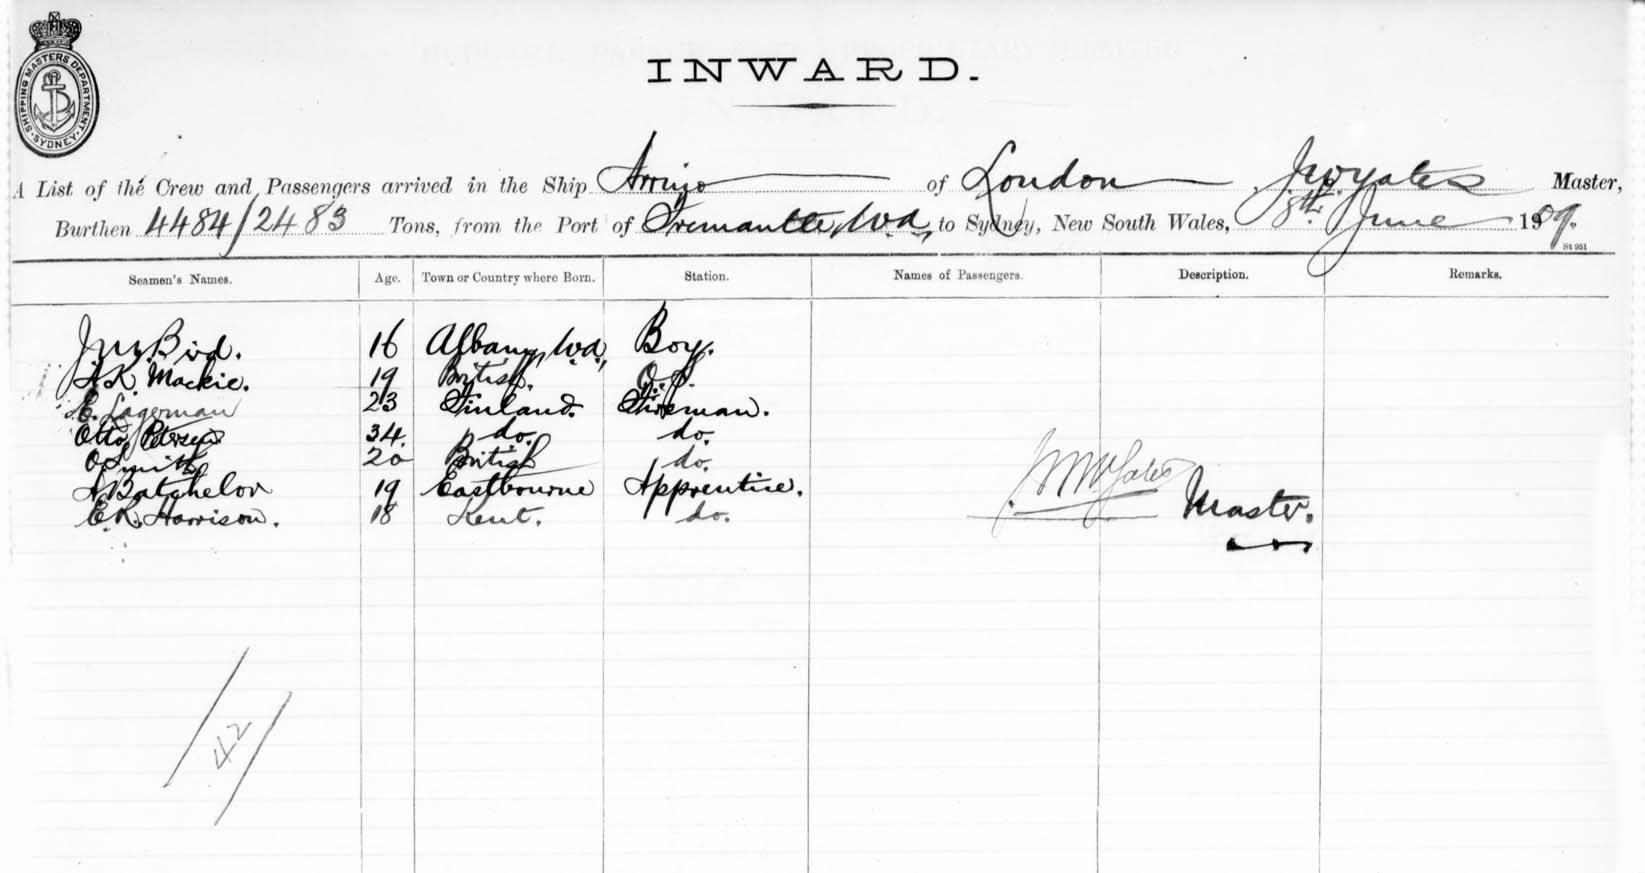 SHIPPING MASTERS DEPARTMENT. SYDNEY
INWARD.
A List of the Crew and Passengers arrived in the Ship Arrino of London Yates Master,
Burthen 4484/2483 Tons, from the Port of Fremantle, W.A., to Sydney, New South Wales, 8th June 1909.
St 951
Seamen's Names. Age. Town or Country where Born. Station. Names of Passengers. Description. Remarks.
J. M. Bird. 16 Albany, W.A, Boy.
A. K. Mackie. 19 British. O.S.
E. Lagerman 23 Finland. Fireman.
Otto Petersen 34. do. do.
O Smith 20 British do.
A Batchelor 19 Eastbourne Apprentice.
E. R. Harrison. 18 Kent. do.
Yates Master.
/42/